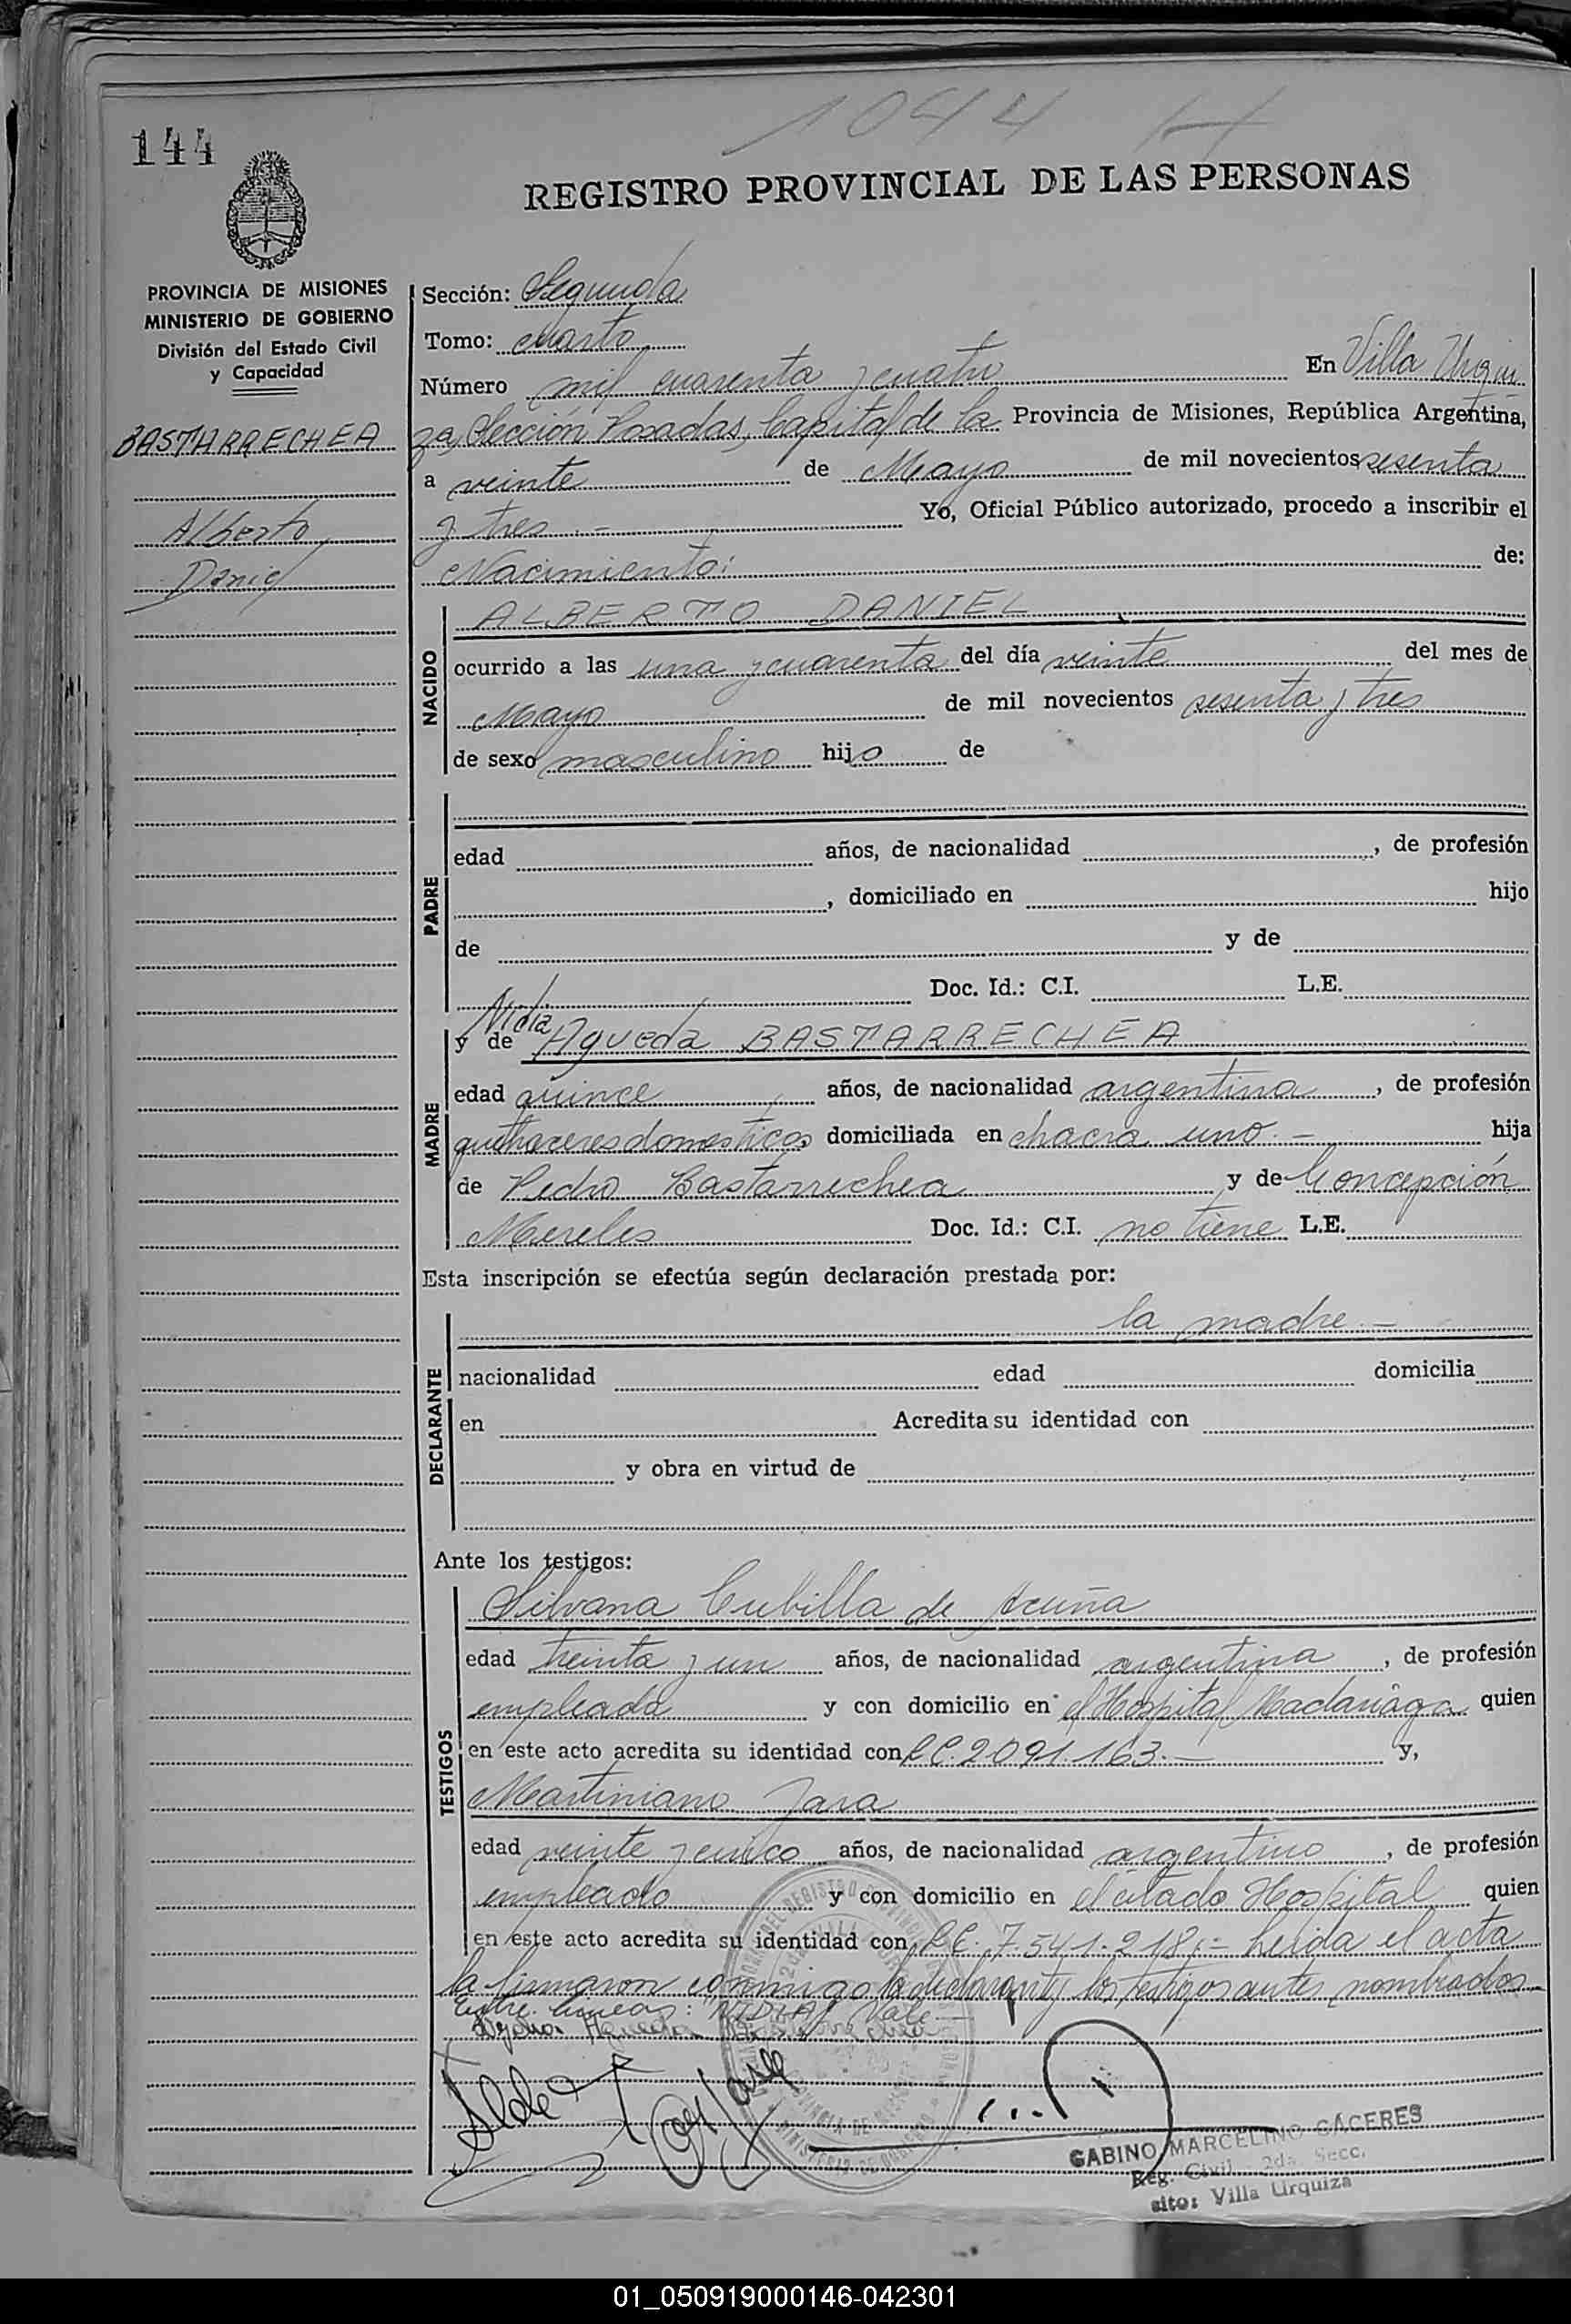 1044
144
REGISTRO PROVINCIAL DE LAS PERSONAS
PROVINCIA DE MISIONES
MINISTERIO DE GOBIERNO
División del Estado Civil
y Capacidad
BASTARRECHEA
Alberto
Daniel
Sección: Segunda
Tomo: cuarto
Número mil cuarenta y cuatro En Villa Urqui
za, Sección Posadas, Capital de la Provincia de Misiones, República Argentina,
a veinte de Mayo de mil novecientos sesenta
y tres.- Yo, Oficial Público autorizado, procedo a inscribir el
Nacimiento: de:
NACIDO
ALBERTO DANIEL
ocurrido a las una y cuarenta del día veinte del mes de
Mayo de mil novecientos sesenta y tres
de sexo masculino hijo de
PADRE
edad años, de nacionalidad , de profesión
, domiciliado en hijo
de y de
Doc. Id.: C.I. L.E.
MADRE
Nidia
y de Agueda BASTARRECHEA
edad quince años, de nacionalidad argentina , de profesión
quehaceres domesticos domiciliada en chacra uno.- hija
de Pedro Bastarrechea y de Concepción
Mereles Doc. Id.: C.I. no tiene L.E.
Esta inscripción se efectúa según declaración prestada por:
DECLARANTE
la madre.-
nacionalidad edad domicilia
en Acredita su identidad con
y obra en virtud de
Ante los testigos:
TESTIGOS
Silvana Cubilla de Acuña
edad treinta y un años, de nacionalidad argentina , de profesión
empleada y con domicilio en el Hospital Madariaga quien
en este acto acredita su identidad con L.C. 2.091.163.- y,
Martiniano Jara
edad veinte y cinco años, de nacionalidad argentino , de profesión
empleado y con domicilio en el citado Hospital quien
en este acto acredita su identidad con L.E. 7.541.218.- Leida el acta
la firmaron conmigo la declarante y los testigos antes nombrados
Entre lineas: "NIDIA", Vale.-
GABINO MARCELINO CACERES
Reg. Civil - 2da. Secc.
sito: Villa Urquiza
01_050919000146-042301